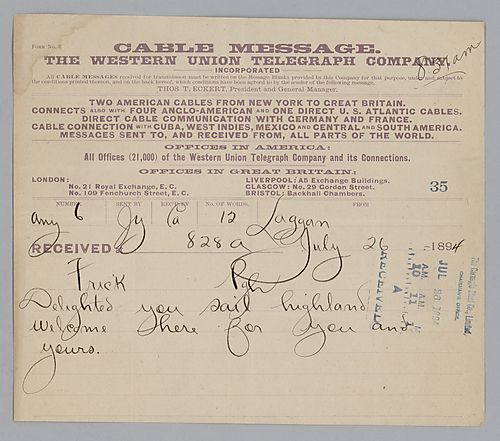 Form No. 8
CABLE MESSAGE.
THE WESTERN UNION TELEGRAPH COMPANY.
INCORPORATED
All CABLE MESSAGES received for transmission must be written on the Message Blanks provided by this Company for that purpose, under and subject to
the conditions printed thereon, and on the back hereof, which conditions have been agreed to by the sender of the following message.
THOS T. ECKERT, President and General Manager.
TWO AMERICAN CABLES FROM NEW YORK TO GREAT BRITAIN.
CONNECTS ALSO WITH FOUR ANGLO-AMERICAN AND ONE DIRECT U. S. ATLANTIC CABLES.
DIRECT CABLE COMMUNICATION WITH GERMANY AND FRANCE.
CABLE CONNECTION WITH CUBA, WEST INDIES, MEXICO AND CENTRAL AND SOUTH AMERICA.
MESSAGES SENT TO, AND RECEIVED FROM, ALL PARTS OF THE WORLD.
OFFICES IN AMERICA:
All Offices (21,000) of the Western Union Telegraph Company and its Connections.
OFFICES IN GREAT BRITAIN:
LONDON:
No. 21 Royal Exchange, E. C.
No. 109 Fenchurch Street, E. C.
LIVERPOOL: A5 Exchange Buildings.
GLASGOW: No. 29 Gordon Street.
BRISTOL: Backhall Chambers.
35
NUMBER SENT BY REC'D BY No. OF WORDS. FROM
any 6 Jy Ca 12 Laggan
RECEIVED at 828 a July 26 -1894
Frick Pgh
Delighted you sail highland
welcome there for you and
yours.
RECEIVED
JUL
The Carnegie Steel Co., Limited,
CHAIRMAN'S OFFICE.